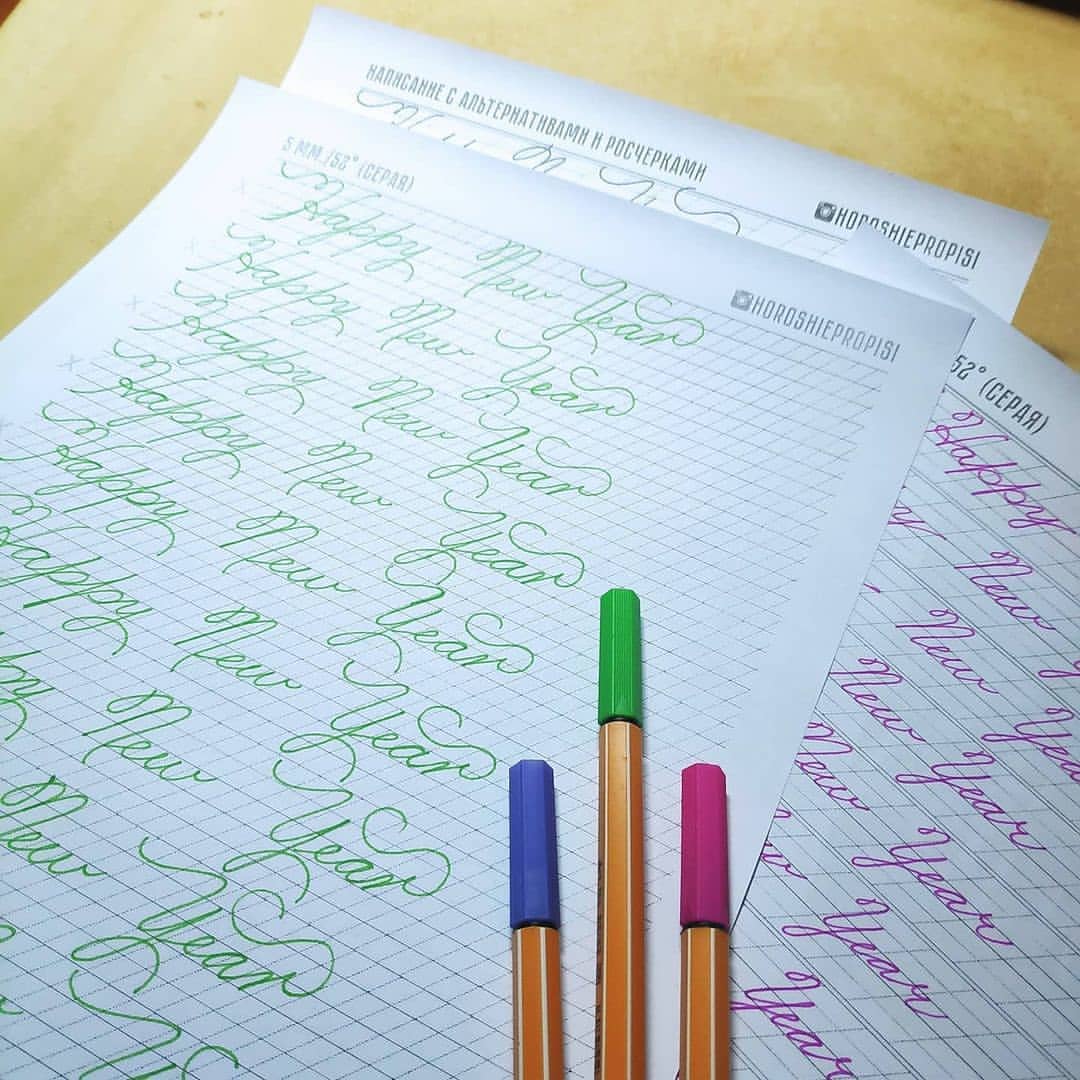 НАПИСАНИЕ С АЛЬТЕРНАТИВАМИ И РОСЧЕРКАМИ
HOROSHIEPROPISI
5 ММ./52° (СЕРАЯ)
HOROSHIEPROPISI
Happy New Year
Happy New Year
Happy New Year
Happy New Year
Happy New Year
Happy New Year
New Year
New Year
52° (СЕРАЯ)
Happy
New
New Year
New Year
New Year
Year